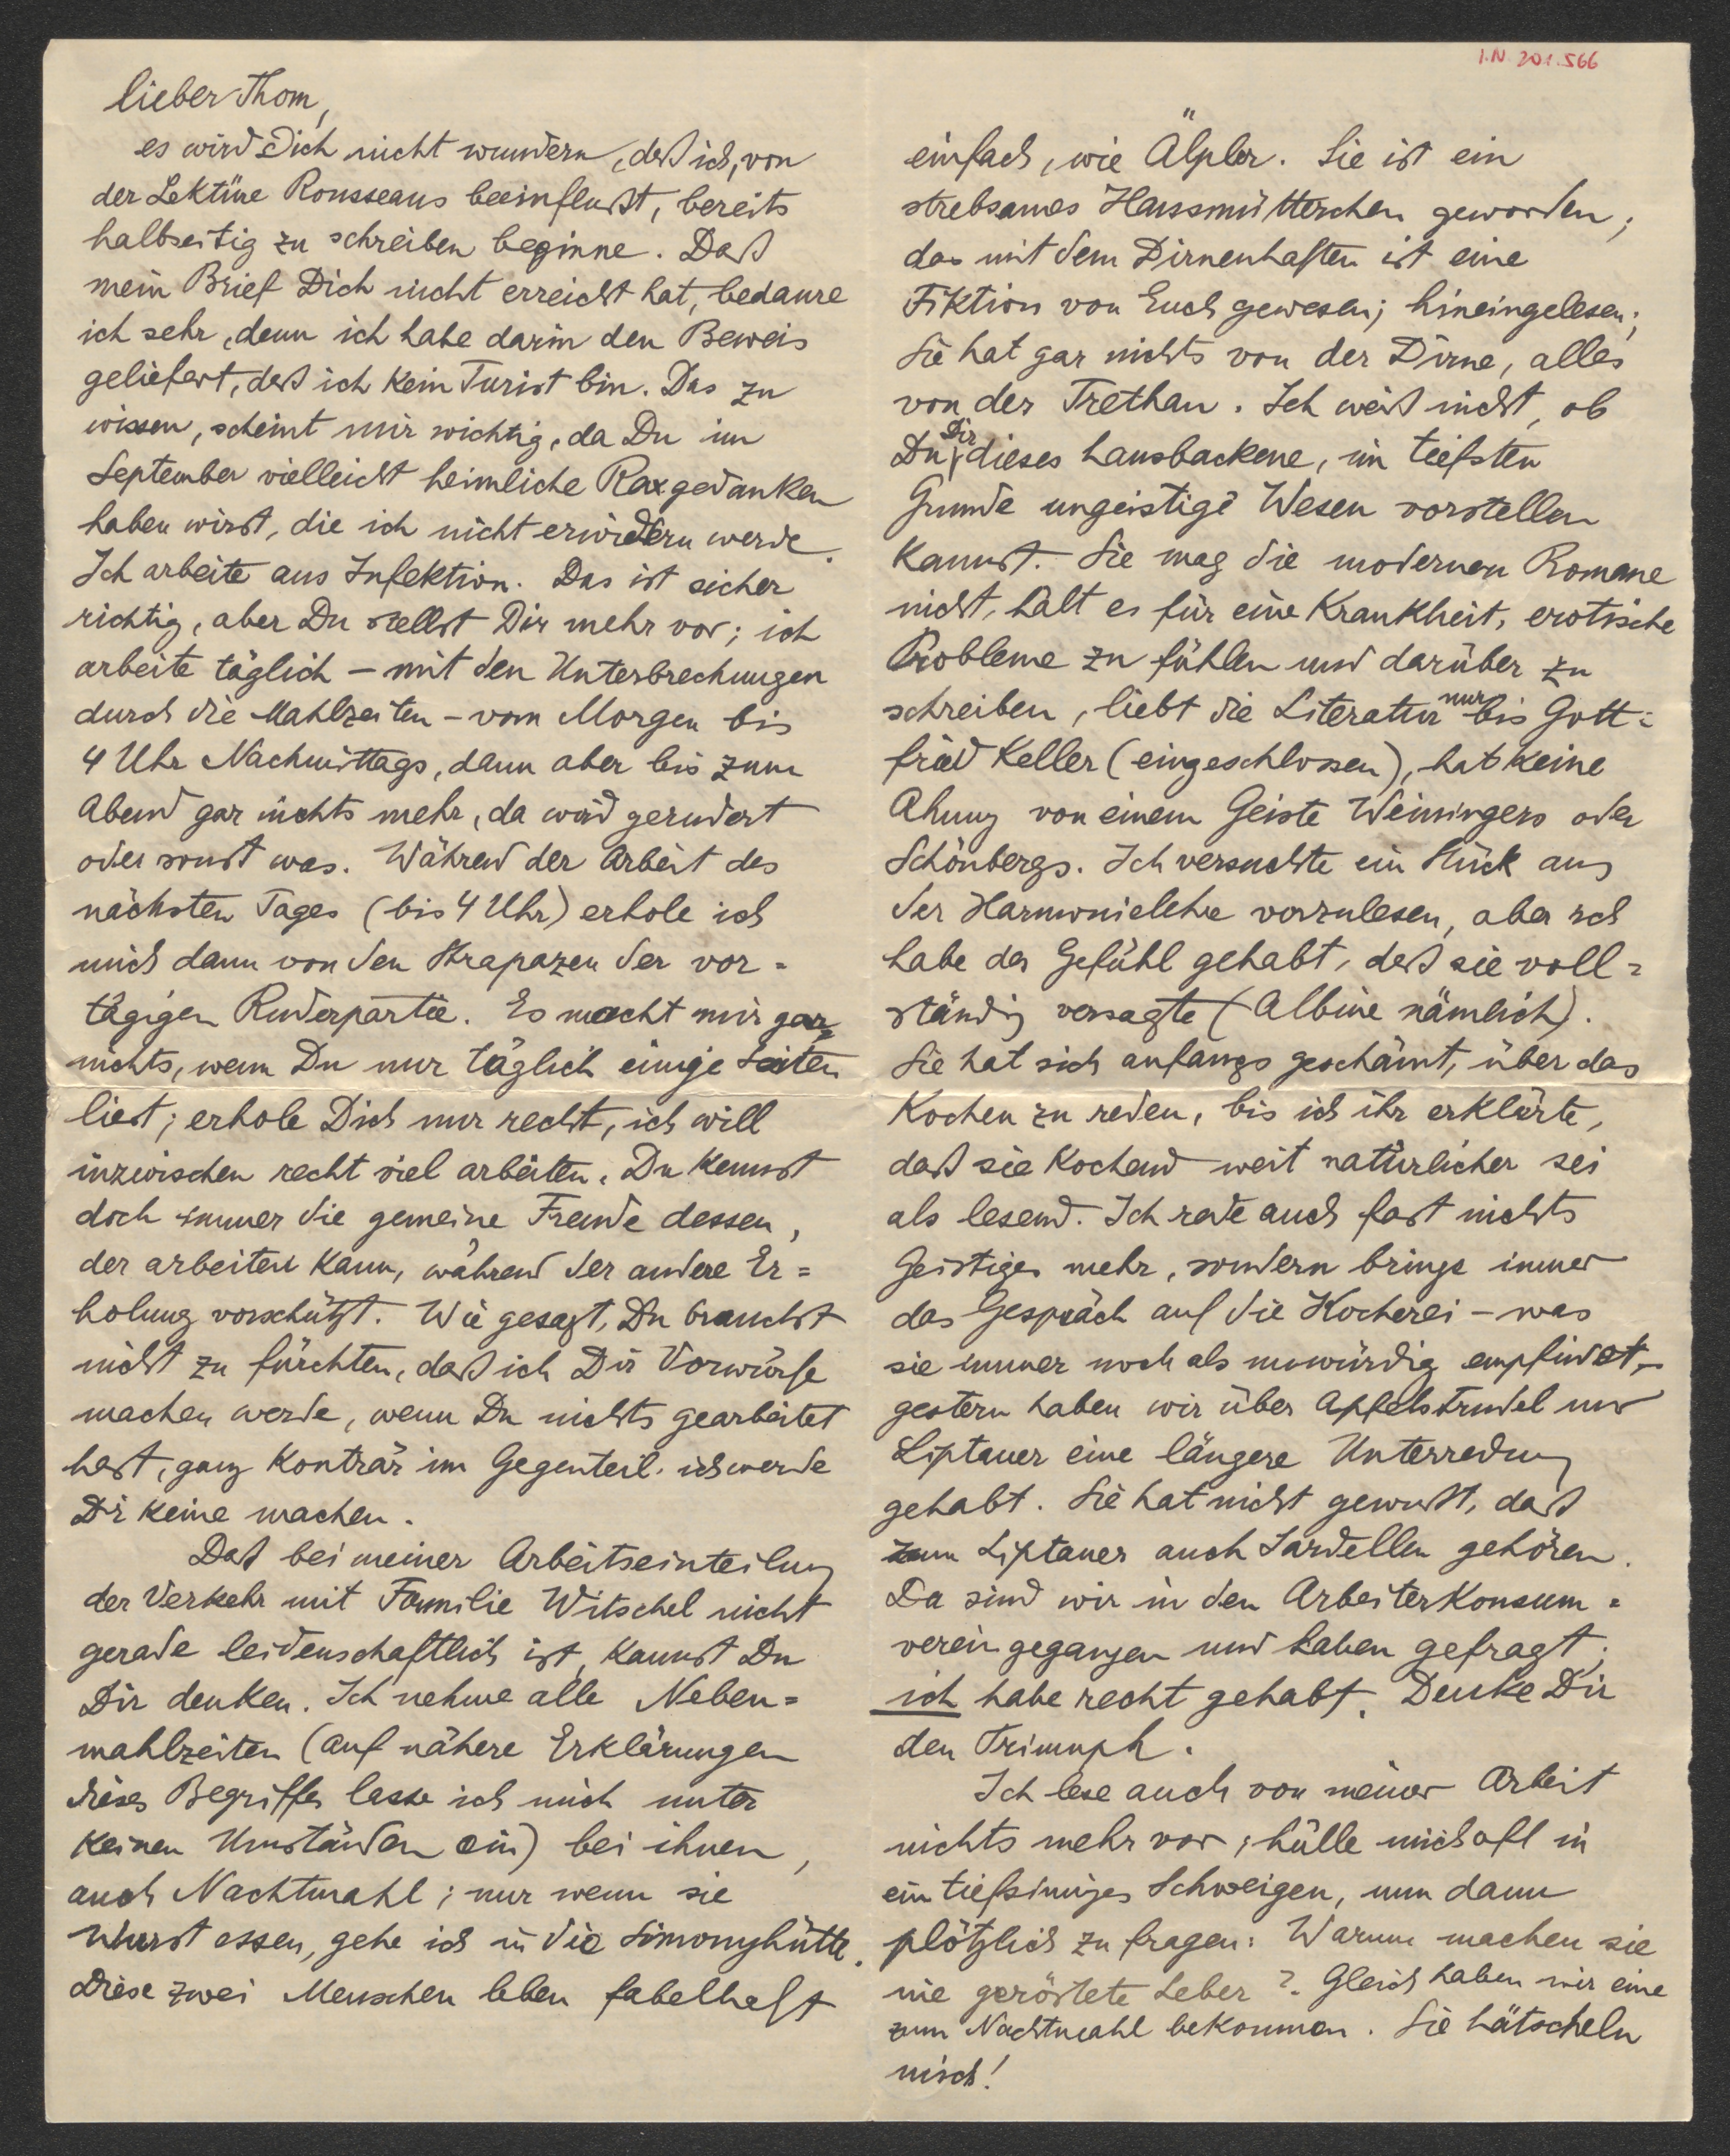 I.N. 201.566
lieber Thom,
es wird Dich nicht wundern, daß ich, von
der Lektüre Rousseaus beeinflußt, bereits
halbseitig zu schreiben beginne. Daß
mein Brief Dich nicht erreicht hat, bedaure
ich sehr, denn ich habe darin den Beweis
geliefert, daß ich kein Turist bin. Das zu
wissen, scheint mir wichtig, da Du im
September vielleicht heimliche Raxgedanken
haben wirst, die ich nicht erwidern werde.
Ich arbeite aus Infektion. Das ist sicher
richtig, aber Du stellst Dir mehr vor; ich
arbeite täglich – mit den Unterbrechungen
durch die Mahlzeiten – vom Morgen bis
4 Uhr Nachmittags, dann aber bis zum
Abend gar nichts mehr, da wird gerudert
oder sonst was. Während der Arbeit des
nächsten Tages (bis 4 Uhr) erhole ich
mich dann von den Strapazen der vor=
tägigen Ruderpartie. Es macht mir gar=
nichts, wenn Du nur täglich einige Seiten
liest; erhole Dich nur recht, ich will
inzwischen recht viel arbeiten. Du kennst
doch immer die gemeine Freude dessen,
der arbeiten kann, während der andere Er=
holung vorschützt. Wie gesagt, Du brauchst
nicht zu fürchten, daß ich Dir Vorwürfe
machen werde, wenn Du nichts gearbeitet
hast, ganz konträr im Gegenteil. ich werde
Dir keine machen.
Daß bei meiner Arbeitseinteilung
der Verkehr mit Familie Witschel nicht
gerade leidenschaftlich ist, kannst Du
Dir denken. Ich nehme alle Neben=
mahlzeiten (auf nähere Erklärungen
dieses Begriffes lasse ich mich unter
keinen Umständen ein) bei ihnen,
auch Nachtmahl; nur wenn sie
Wurst essen, gehe ich in die Simonyhütte.
Diese zwei Menschen leben fabelhaft
einfach, wie Älpler. Sie ist ein
strebsames Hausmütterchen geworden;
das mit dem Dirnenhaften ist eine
Fiktion von Euch gewesen; hineingelesen;
Sie hat gar nichts von der Dirne, alles
von der Trethan. Ich weiß nicht, ob
Du Dir dieses hausbackene, im tiefsten
Grunde ungeistige Wesen vorstellen
kannst. Sie mag die modernen Romane
nicht, hält es für eine Krankheit, erotische
Probleme zu fühlen und darüber zu
schreiben, liebt die Literatur nur bis Gott=
fried Keller (eingeschlossen), hat keine
Ahnung von einem Geiste Weiningers oder
Schönbergs. Ich versuchte ein Stück aus
der Harmonielehre vorzulesen, aber ich
habe das Gefühl gehabt, daß sie voll=
ständig versagte (Albine nämlich).
Sie hat sich anfangs geschämt, über das
Kochen zu reden, bis ich ihr erklärte,
daß sie kochend weit natürlicher sei
als lesend. Ich rede auch fast nichts
Geistiges mehr, sondern bringe immer
das Gespräch auf die Kocherei – was
sie immer noch als unwürdig empfindet, –
gestern haben wir über Apfelstrudel und
Liptauer eine längere Unterredung
gehabt. Sie hat nicht gewußt, daß
zum Liptauer auch Sardellen gehören.
Da sind wir in den Arbeiterkonsum=
verein gegangen und haben gefragt;
ich habe recht gehabt. Denke Dir
den Triumph.
Ich lese auch von meiner Arbeit
nichts mehr vor; hülle mich oft in
ein tiefsinniges Schweigen, um dann
plötzlich zu fragen: Warum machen sie
nie geröstete Leber? Gleich haben wir eine
zum Nachtmahl bekommen. Sie hätscheln
mich!